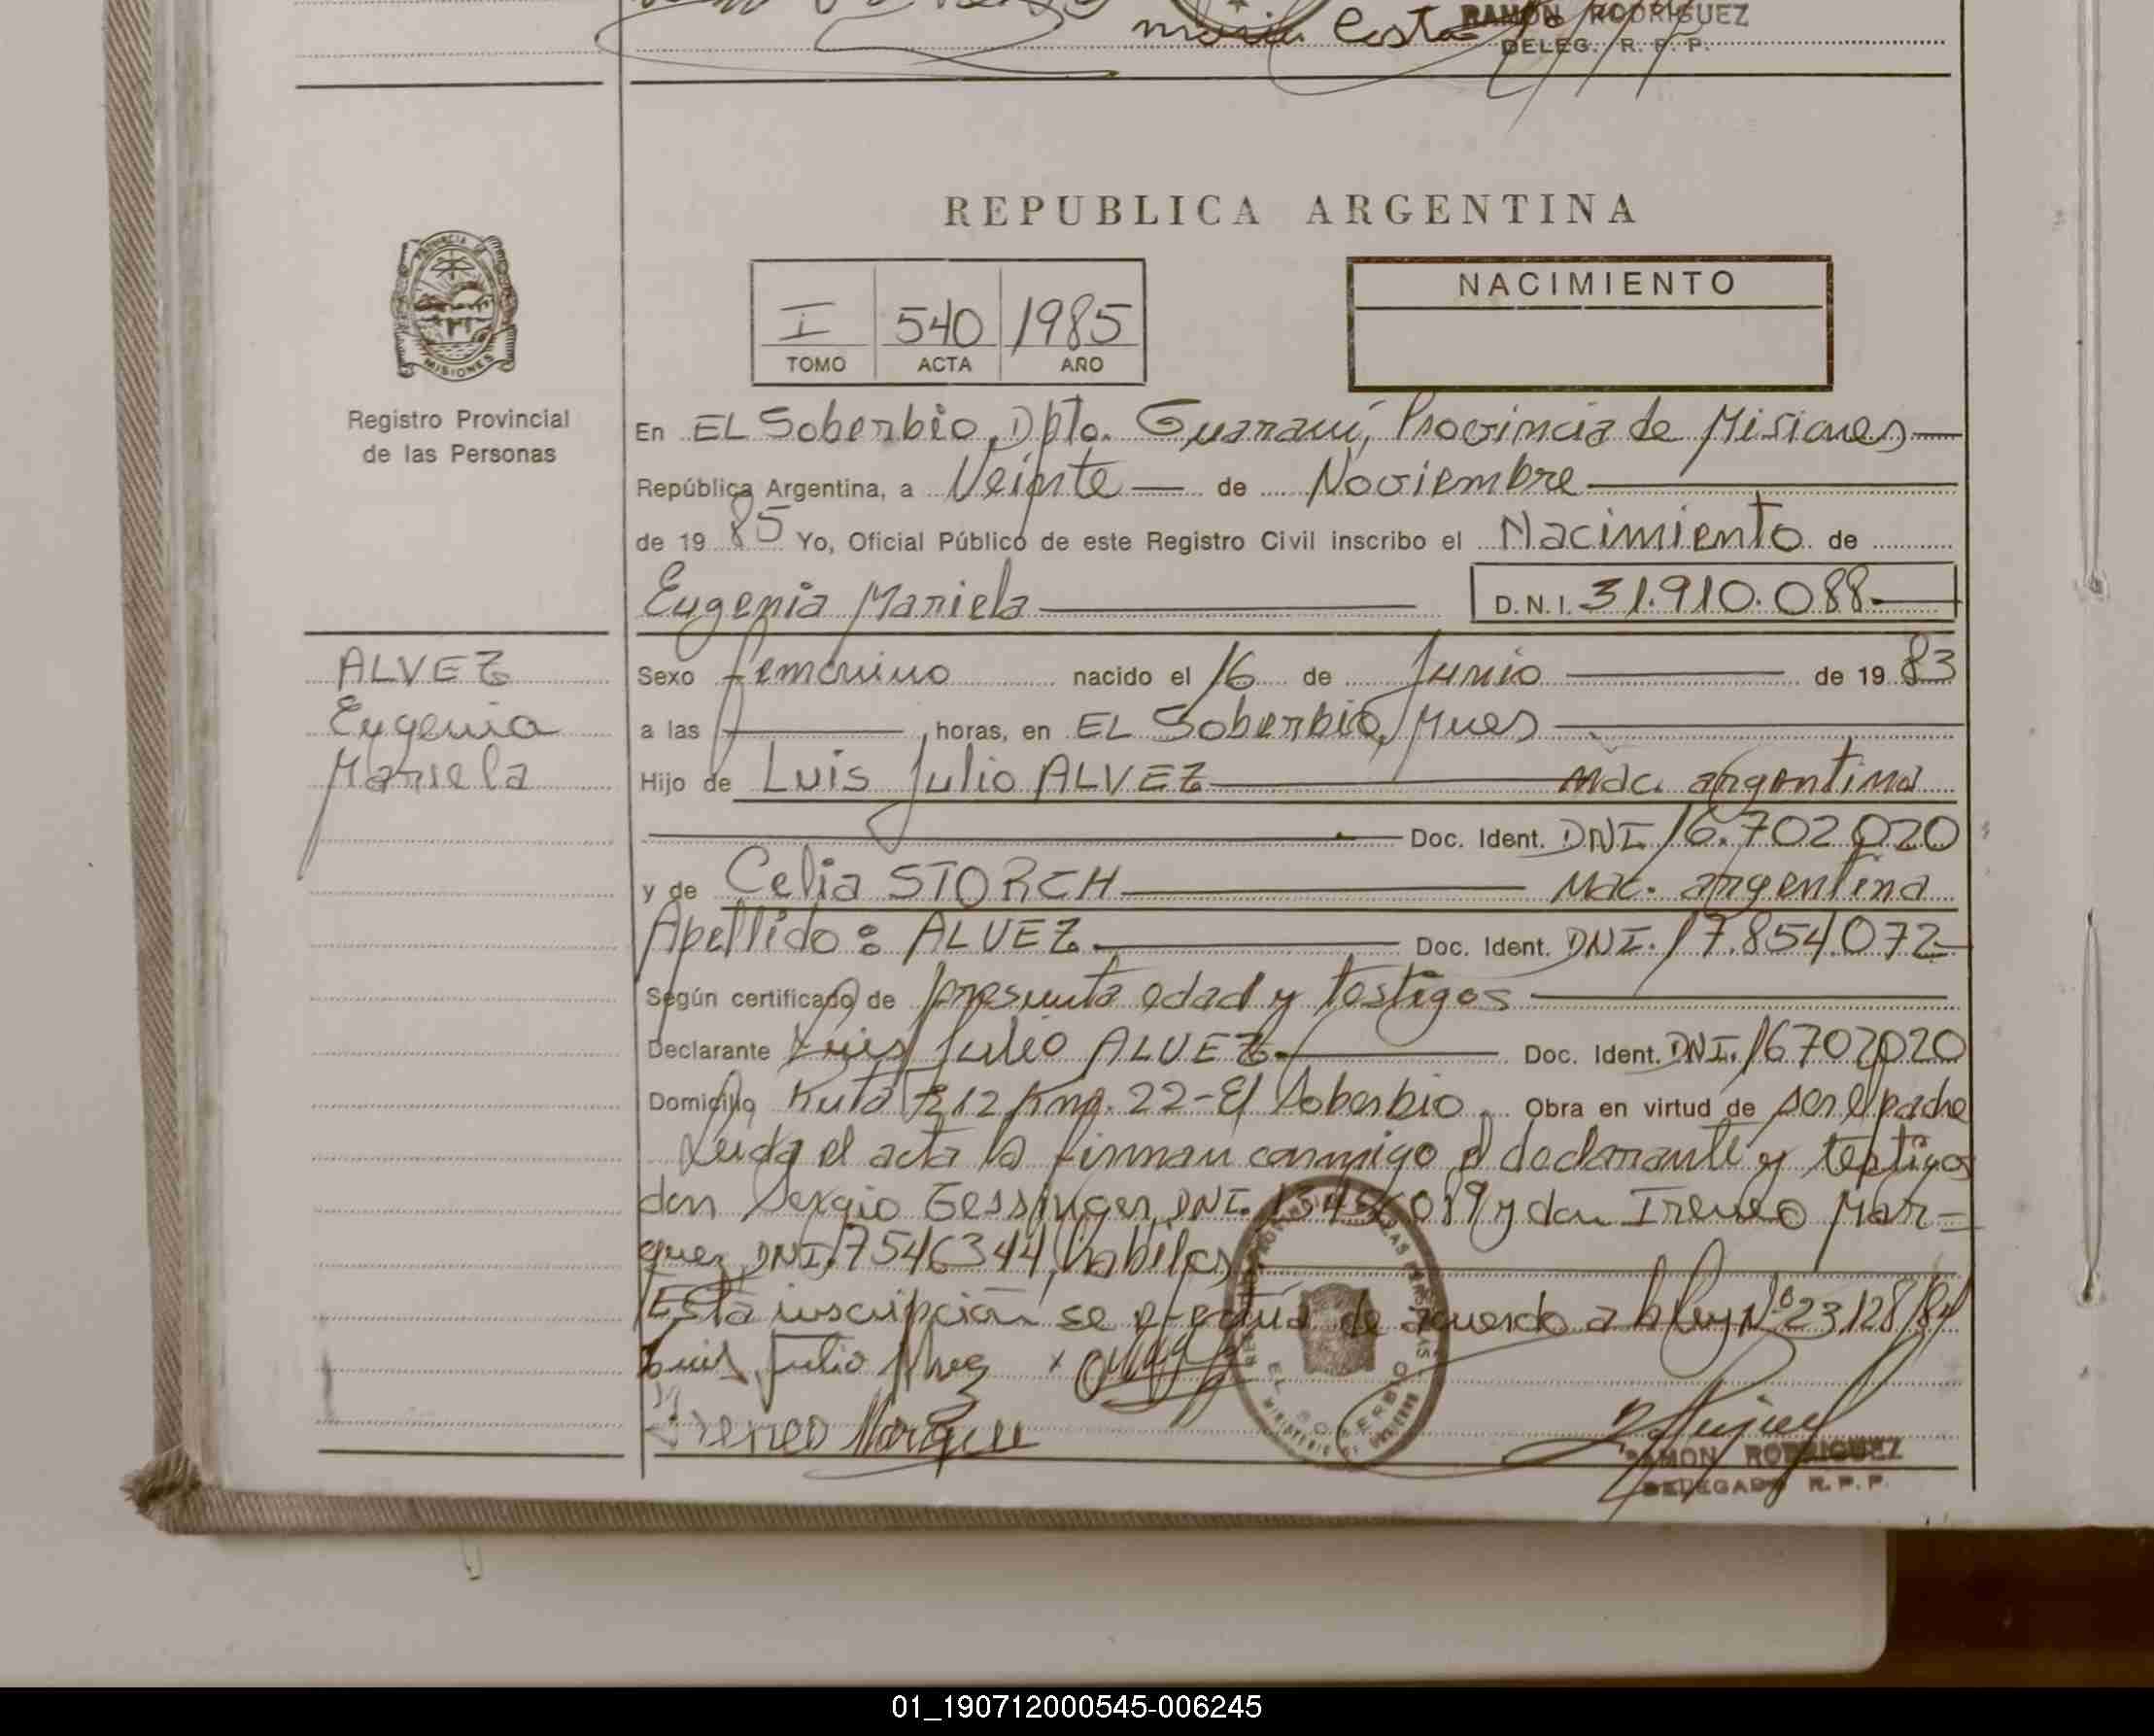 RAMON RODRIGUEZ
DELEG. R. P. P.
REPUBLICA ARGENTINA
PROVINCIA DE
MISIONES
Registro Provincial
de las Personas
I 540 1985
TOMO ACTA AÑO
NACIMIENTO
En EL Soberbio, Dpto. Guaraní, Provincia de Misiones
República Argentina, a Veinte de Noviembre
de 19 85 Yo, Oficial Público de este Registro Civil inscribo el Nacimiento de
Eugenia Mariela D.N.I. 31.910.088
ALVEZ
Eugenia
Mariela
Sexo femenino nacido el 16 de Junio de 19 83
a las horas, en EL Soberbio, Mnes
Hijo de Luis Julio ALVEZ Nac. argentina
Doc. Ident. DNI 16.702.020
y de Celia STORCH Nac. argentina
Apellido: ALVEZ Doc. Ident. DNI. 17.854.072
Según certificado de presunta edad y testigos
Declarante Luis Julio ALVEZ Doc. Ident. DNI. 16702020
Domicilio Ruta 212 Km. 22-El Soberbio Obra en virtud de ser el padre
Leida el acta la firman conmigo el declarante y testigos
don Sergio Gessinger, DNI. y don Ireneo Mar-
quez, DNI. 7546344, habiles
Esta inscripción se efectúa de acuerdo a la ley Nº 23.128/84
Luis Julio Alvez
Ireneo Marquez
EL SOBERBIO
RAMON RODRIGUEZ
DELEGADO R. P. P.
01_190712000545-006245